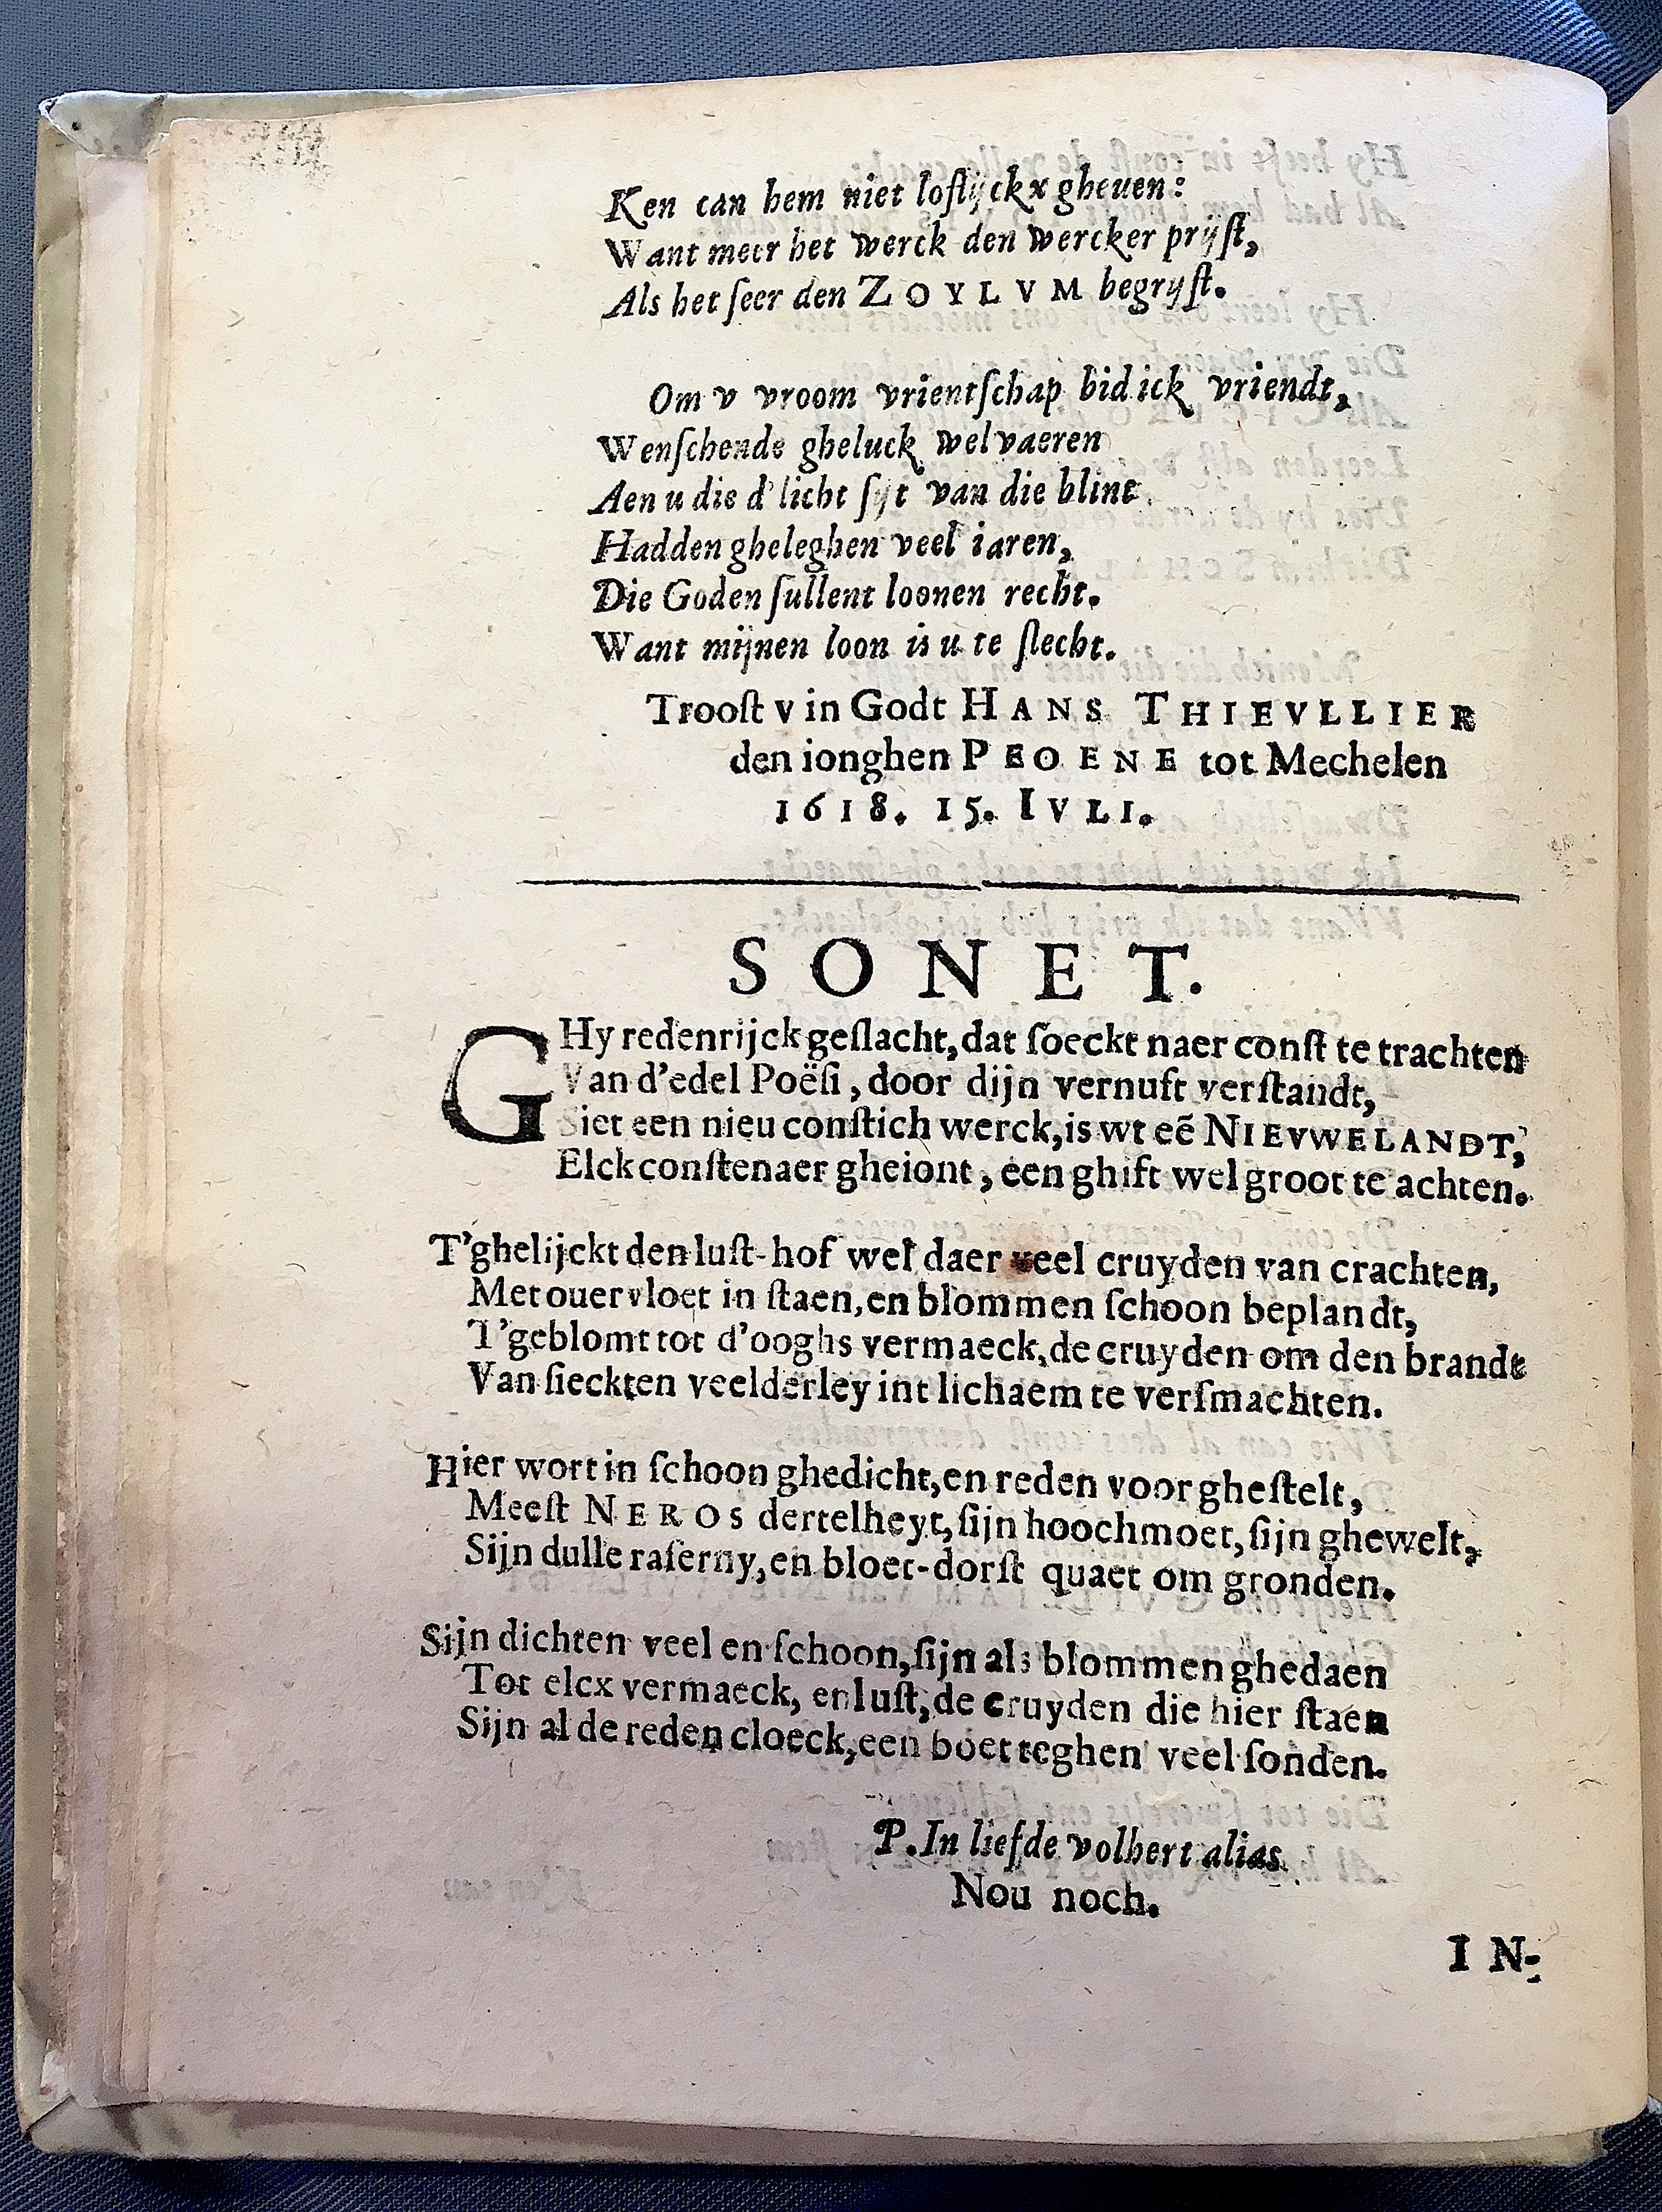 Ken can hem niet loflijckx gheuen:
Want meer het werck den wercker prijſt,
Als het ſeer den ZOYLVM begrijſt.
Om v vroom vrientſchap bid ick vriendt,
Wenſchende gheluck welvaeren
Aen u die d'licht ſijt van die blint
Hadden gheleghen veel iaren,
Die Goden ſullent loonen recht.
Want mijnen loon is u te ſlecht.
Trooſt v in Godt HANS THIEVLLIER
den ionghen PEOENE tot Mechelen
1618. 15. IVLI.
SONET.
GHy redenrijck geſlacht, dat ſoeckt naer conſt te trachten
Van d'edel Poëſi, door dijn vernuft verſtandt,
Siet een nieu conſtich werck, is wt eē NIEVWELANDT,
Elck conſtenaer gheiont, een ghift wel groot te achten.
T'ghelijckt den luſt-hof wel daer veel cruyden van crachten,
Met ouervloet in ſtaen, en blommen ſchoon beplandt,
T'geblomt tot d'ooghs vermaeck, de cruyden om den brandt
Van ſieckten veelderley int lichaem te verſmachten.
Hier wort in ſchoon ghedicht, en reden voorgheſtelt,
Meeſt NEROS dertelheyt, ſijn hoochmoet, ſijn ghewelt,
Sijn dulle raſerny, en bloet-dorſt quaet om gronden.
Sijn dichten veel en ſchoon, ſijn als blommen ghedaen
Tot elcx vermaeck, en luſt, de cruyden die hier ſtaen
Sijn al de reden cloeck, een boet teghen veel ſonden.
P. In liefde volhert alias
Nou noch.
IN-